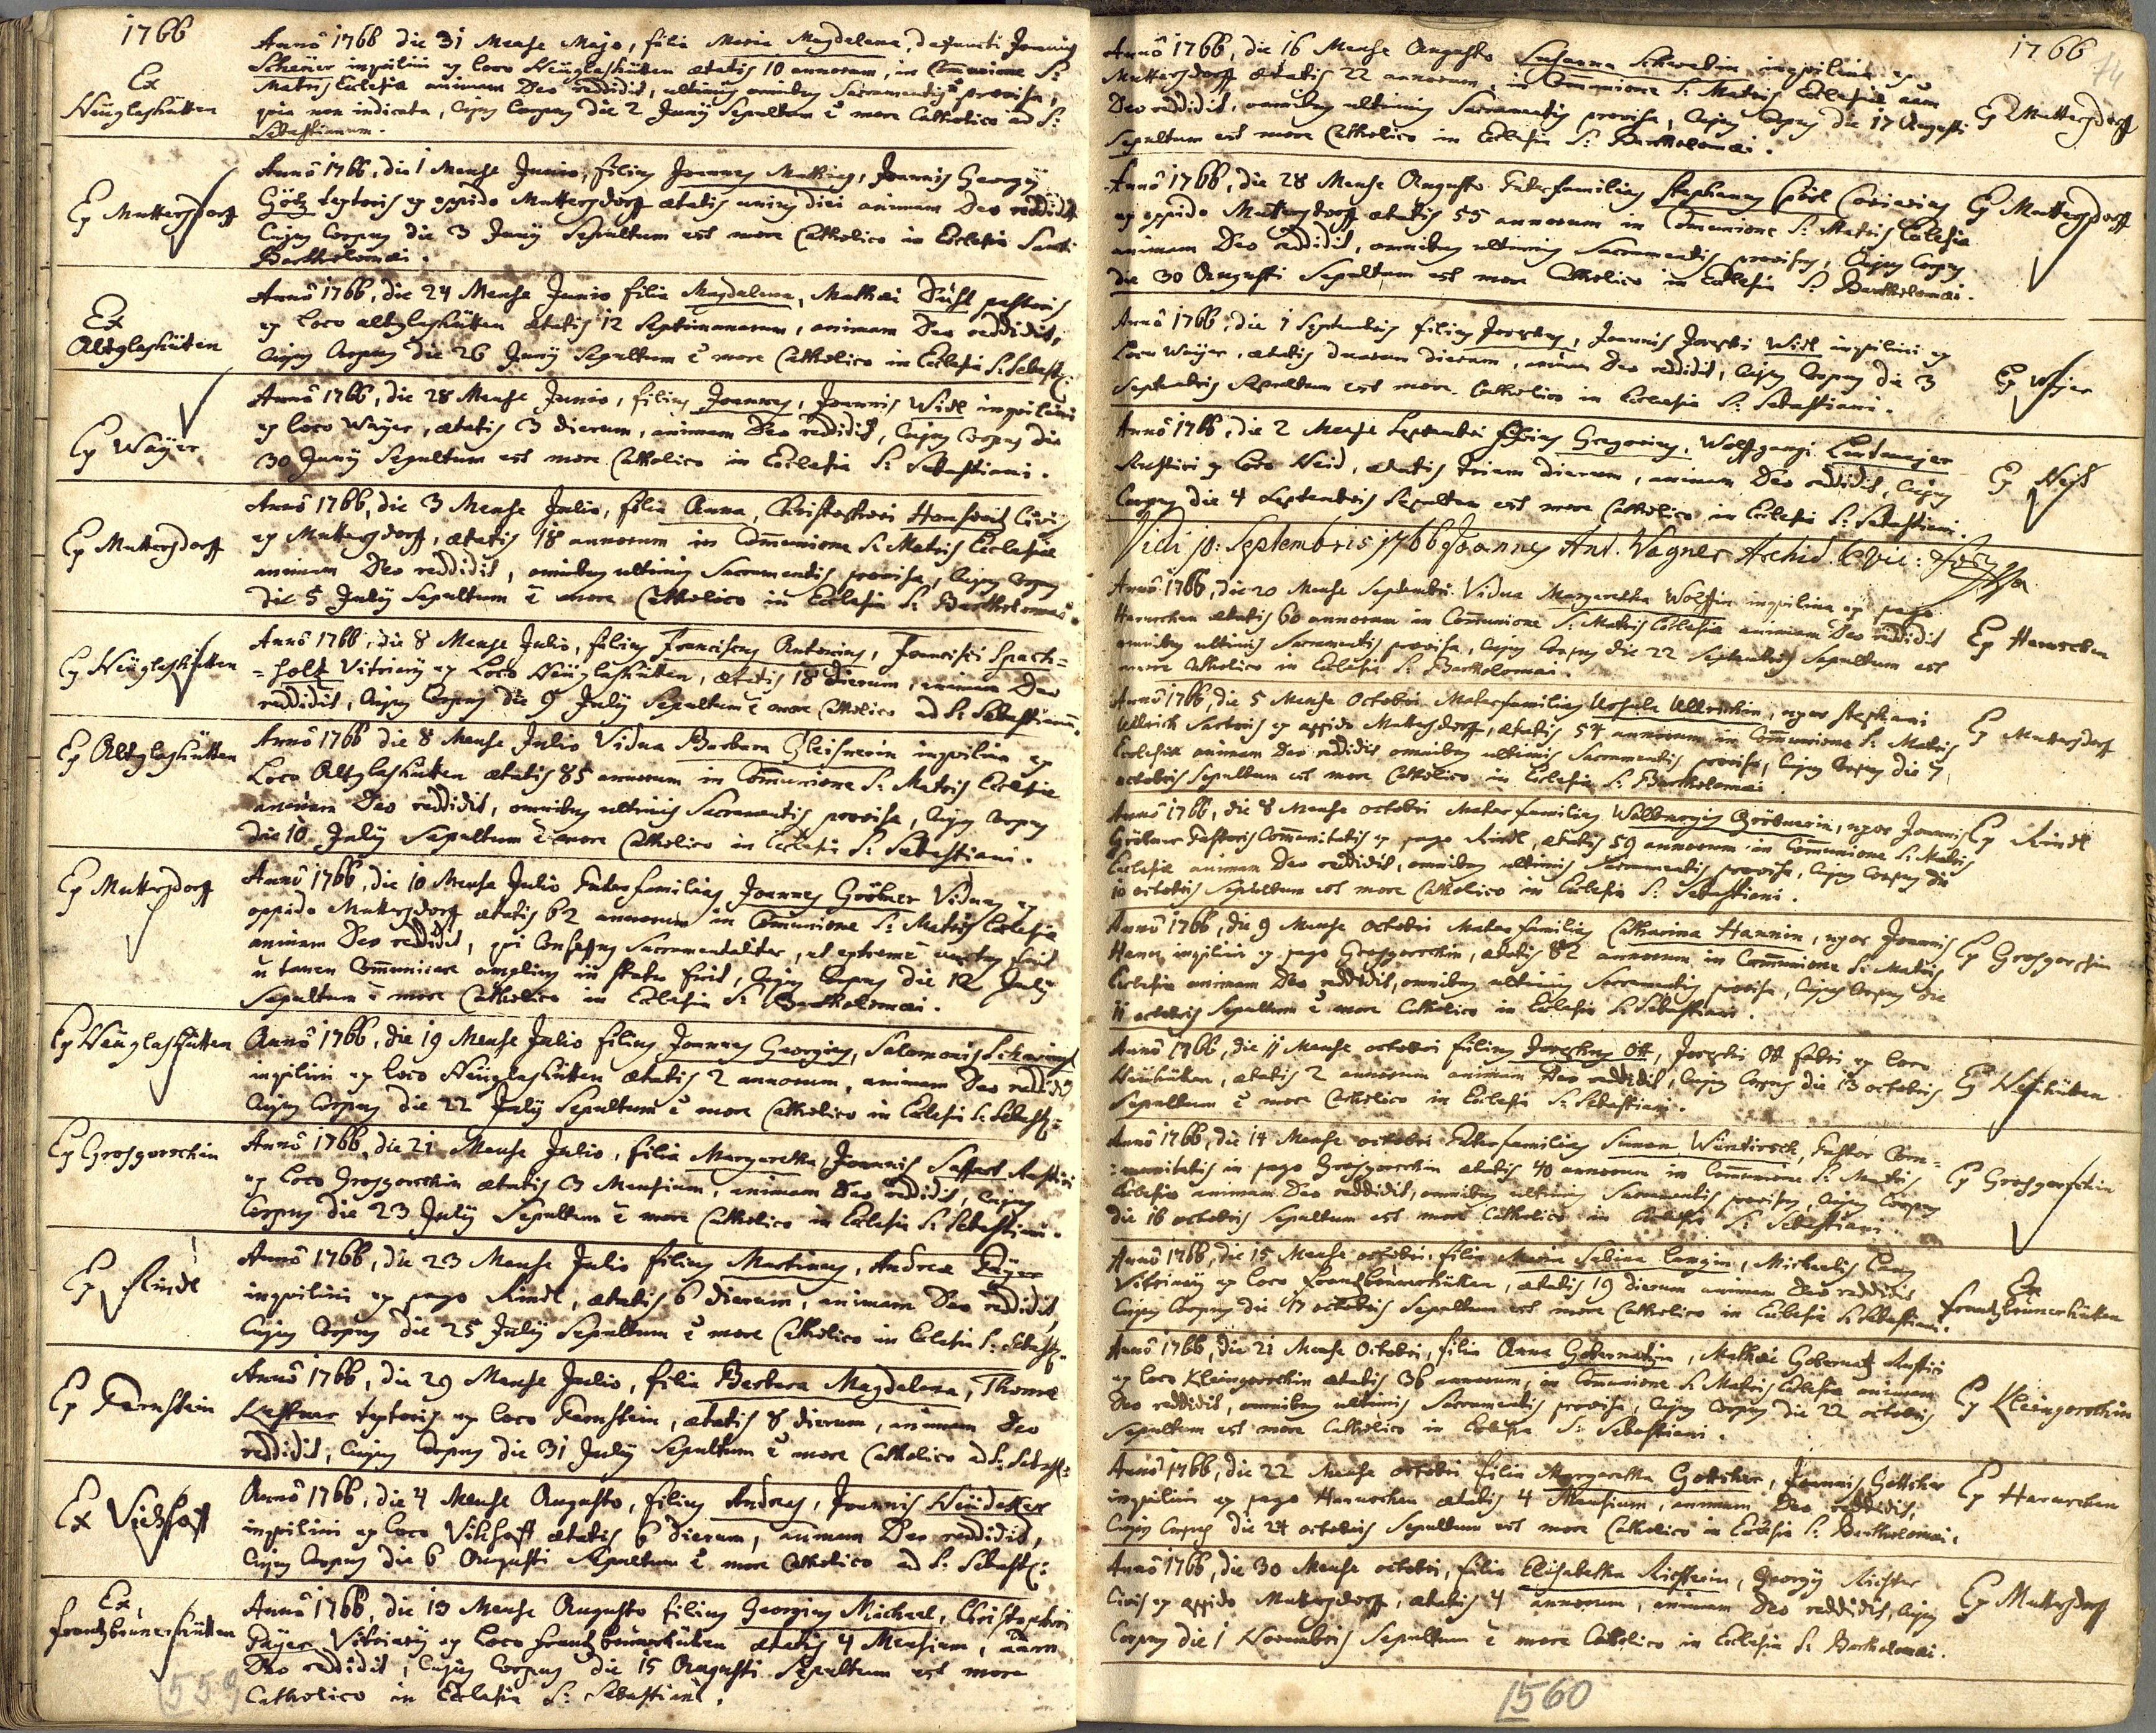 1766
Ex
Neüglashütten
Anno 1766 die 31 Mense Majo, filia Maria Magdalena, defuncti Joannis
Scheüer inquilini ex loco Neüglashütten ætatis 10 annorum, in Com̄unione S:
Matris Eclesiæ animam Deo reddidit, ultimis omnibus Sacramentis provisa,
quia non indicata, Cujus Corpus die 2 Junÿ Sepultum ē more Catholico ad S:
Sebastianum.
Ex Muttersdorff
Anno 1766, die 1 Mense Junio, filius Joannes Mathias, Joannis Georgÿ
Götz textoris ex oppido Muttersdorff ætatis unius diei animam Deo reddidit
Cujus Corpus die 3 Junÿ Sepultum est more Catholico in Eclesia Sancti
Bartholomæi.
Ex
Altglashütten
Anno 1766, die 24 Mense Junio filia Magdalena, Mathæi pastoris
ex loco altglashütten ætatis 12 Septimanarum, animam Deo reddidit,
Cujus Corpus die 26 Junÿ Sepultum ē more Catholico in Eclesia S: Sebast:
Ex Waÿer
Anno 1766, die 28 Mense Junio, filius Joannes, Joannis Widl inquilini
ex loco Waÿer, ætatis 3 dierum, animam Deo reddidit, Cujus Corpus die
30 Junÿ Sepultum est more Catholico in Eclesia S: Sebastiani.
Ex Muttersdorff
Anno 1766, die 3 Mense Julio, filia Anna, Christophori Civis
ex Muttersdorff, ætatis 18 annorum in Com̄unione S: Matris Ecclesiæ
animam Deo reddidit, omnibus ultimis Sacramentis provisa, Cujus Corpus
die 5 Julÿ Sepultum ē more Catholico in Eclesia S: Bartholomæi.
Ex Neüglashütten
Anno 1766, die 8 Mense Julio, filius Franciscus Antonius, Francisci Spach=
=holtz Vitriarÿ ex Loco Neüglashütten, ætatis 18 dierum, animam Deo
reddidit, Cujus Corpus die 9 Julÿ Sepultum ē more Catholico ad S: Sebastianum.
Ex Altglashütten
Anno 1766 die 8 Mense Julio Vidua Barbara Gleisnerin inquilina ex
Loco Altglashütten ætatis 85 annorum in Com̄unione S: Matris Eclesiæ
animam Deo reddidit, omnibus ultimis Sacramentis provisa, Cujus Corpus
die 10 Julÿ Sepultum ē more Catholico in Eclesia S: Sebastiani.
Ex Muttersdorff
Anno 1766, die 10 Mense Julio Paterfamilias Joannes Gröbner Viduus ex
oppido Muttersdorff ætatis 62 annorum in Com̄unione S: Matris Eclesiæ
animam Deo reddidit, qui Confessus Sacramentaliter, et extremē unctus fuit
ñ tamen Com̄unicare amplius in statu fuit, Cujus Corpus die 12 Julÿ
Sepultum ē more Catholico in Eclesia S: Bartholomæi.
Ex Neüglashütten
Anno 1766, die 19 Mense Julio filius Joannes Georgius, Salomonis
inquilini ex loco Neüglashütten ætatis 2 annorum, animam Deo reddidit
Cujus Corpus die 22 Julÿ Sepultum ē more Catholico in Eclesia S: Sebast:
Ex Grosgorschin
Anno 1766, die 21 Mense Julio, filia Margaretha, Joannis Rustici
ex loco Grosgorschin ætatis 3 Mensium, animam Deo reddidit, Cujus
Corpus die 23 Julÿ Sepultum ē more Catholico in Eclesia S: Sebastiani.
Ex Rindl
Anno 1766, die 23 Mense Julio filius Martinus, Andreæ Päÿer
inquilini ex pago Rindl, ætatis 6 dierum, animam Deo reddidit,
Cujus Corpus die 25 Julÿ Sepultum ē more Catholico in Eclesia S: Sebast:
Ex Fernstein
Anno 1766, die 29 Mense Julio, filia Barbara Magdalena, Thomæ
Kastner textoris ex loco Fernstein, ætatis 8 dierum, animam Deo
reddidit, Cujus Corpus die 31 Julÿ Sepultum ē more Catholico ad S: Sebast:
Ex Viehhoff
Anno 1766, die 4 Mense Augusto, filius Andreas, Joannis
inquilini ex loco Vihhoff ætatis 6 dierum, animam Deo reddidit,
Cujus Corpus die 6 Augusti Sepultum ē more Catholico ad S: Sebast:
Ex
frantzbrunerhütten
Anno 1766, die 13 Mense Augusto filius Georgius Michael, Christophori
Päÿer Vitriarÿ ex loco frantzbrunerhütten ætatis 4 Mensium, āam
Deo reddidit, Cujus Corpus die 15 Augusti Sepultum est more
Catholico in Eclesia S: Sebastiani.
559
1766
74
Anno 1766, die 16 Mense Augusto Susanna inquilina ex
Muttersdorff ætatis 22 annorum, in Com̄unione S: Matris Eclesiæ āam
Deo reddidit, omnibus ultimis Sacramentis provisa, Cujus Corpus die 17 Augusti
Sepultum est more Catholico in Eclesia S: Bartholomæi.
Ex Muttersdorff
Anno 1766, die 28 Mense Augusto Paterfamilias Stephanus
ex oppido Muttersdorff ætatis 55 annorum in Com̄unione S: Matris Eclesiæ
animam Deo reddidit, omnibus ultimis Sacramentis provisus, Cujus Corpus
die 30 Augusti Sepultum est more Catholico in Eclesia S: Bartholomæi.
Ex Muttersdorff
Anno 1766, die 1 Septembris filius Josephus, Joannis Josephi Widl inquilini ex
Loco Waÿer, ætatis duarum dierum, animam Deo reddidit, Cujus Corpus die 3
Septembris Sepultum est more Catholico in Eclesia S: Sebastiani.
Ex Waÿer
Anno 1766, die 2 Mense Septembri filius Gregorius, Wolffgangi
Rustici ex loco Heid, ætatis trium dierum, animam Deo reddidit, Cujus
Corpus die 4 Septembris Sepultum est more Catholico in Eclesia S: Sebastiani.
Ex Heid
Vidi 10: Septembris 1766 Joannes Ant. Wagner Archid. & Vic:
Anno 1766, die 20 Mense Septembri Vidua Margaretha Wolfin inquilina ex pago
Haruschen ætatis 60 annorum in Com̄unione S: Matris Eclesiæ animam Deo reddidit
omnibus ultimis Sacramentis provisa, Cujus Corpus die 22 Septembris Sepultum est
more Catholico in Eclesia S: Bartholomæi.
Ex Haruschen
Anno 1766, die 5 Mense Octobri Materfamilias Ursula Ullrichin, uxor Stephani
Ullrich Sartoris ex oppido Muttersdorff, ætatis 54 annorum in Com̄unione S: Matris
Eclesiæ animam Deo reddidit omnibus ultimis Sacramentis provisa, Cujus Corpus die 7
octobris Sepultum est more Catholico in Eclesia S: Bartholomæi
Ex Muttersdorff
Anno 1766, die 8 Mense octobri Materfamilias Walburgis Gröbnerin, uxor Joannis
Gröbner Pastoris Com̄unitatis ex pago Rindl, ætatis 59 annorum in Com̄unione S: Matris
Eclesiæ animam Deo reddidit, omnibus ultimis Sacramentis provisa, Cujus Corpus die
10 octobris Sepultum est more Catholico in Eclesia S: Sebastiani.
Ex Rindl
Anno 1766, die 9 Mense octobri Materfamilias Catharina Hannin, uxor Joannis
Hann inquilini ex pago Grosgorschin, ætatis 82 annorum in Com̄unione S: Matris
Eclesiæ animam Deo reddidit, omnibus ultimis Sacramentis provisa, Cujus Corpus die
11 octobris Sepultum ē more Catholico in Eclesia S: Sebastiani.
Ex Grosgorschin
Anno 1766, die 11 Mense octobri filius Josephus Ott, Josephi Ott fabri ex loco
Neühütten, ætatis 2 annorum animam Deo reddidit, Cujus Corpus die 13 octobris
Sepultum ē more Catholico in Eclesia S: Sebastiani.
Ex Neühütten
Anno 1766, die 14 Mense octobri Paterfamilias Simon Wüntirsch, Pastor Com=
=munitatis in pago Grosgorschin ætatis 40 annorum in Com̄unione S: Matris
Eclesiæ animam Deo reddidit, omnibus ultimis Sacramentis provisus, Cujus Corpus
die 16 octobris Sepultum est more Catholico in Eclesia S: Sebastiani.
Ex Grosgorschin
Anno 1766, die 15 Mense octobri, filia Maria Sabina Langin, Michaelis Lang
Vitriarÿ ex loco frantzbrunerhütten, ætatis 19 dierum animam Deo reddidit
Cujus Corpus die 17 octobris Sepultum est more Catholico in Eclesia S: Sebastiani.
Ex
frantzbrunerhütten
Anno 1766, die 21 Mense Octobri, filia Anna Gobernatzin, Mathæi Gobernatz Rustici
ex loco Kleingorschin ætatis 36 annorum, in Com̄unione S: Matris Eclesiæ animam
Deo reddidit, omnibus ultimis Sacramentis provisa, Cujus Corpus die 22 octobris
Sepultum est more Catholico in Eclesia S: Sebastiani.
Ex Kleingorschin
Anno 1766, die 22 Mense octobri filia Margaretha Gottscher, Joannis Gottscher
inquilini ex pago Haruschen ætatis 4 Mensium, animam Deo reddidit,
Cujus Corpus die 24 octobris Sepultum est more Catholico in Eclesia S: Bartholomæi.
Ex Haruschen
Anno 1766, die 30 Mense octobri, filia Elisabetha Richterin, Georgÿ Richter
Civis ex oppido Muttersdorff, ætatis 4 annorum, animam Deo reddidit, Cujus
Corpus die 1 Novembris Sepultum ē more Catholico in Eclesia S: Bartholomæi.
Ex Muttersdorff
1560